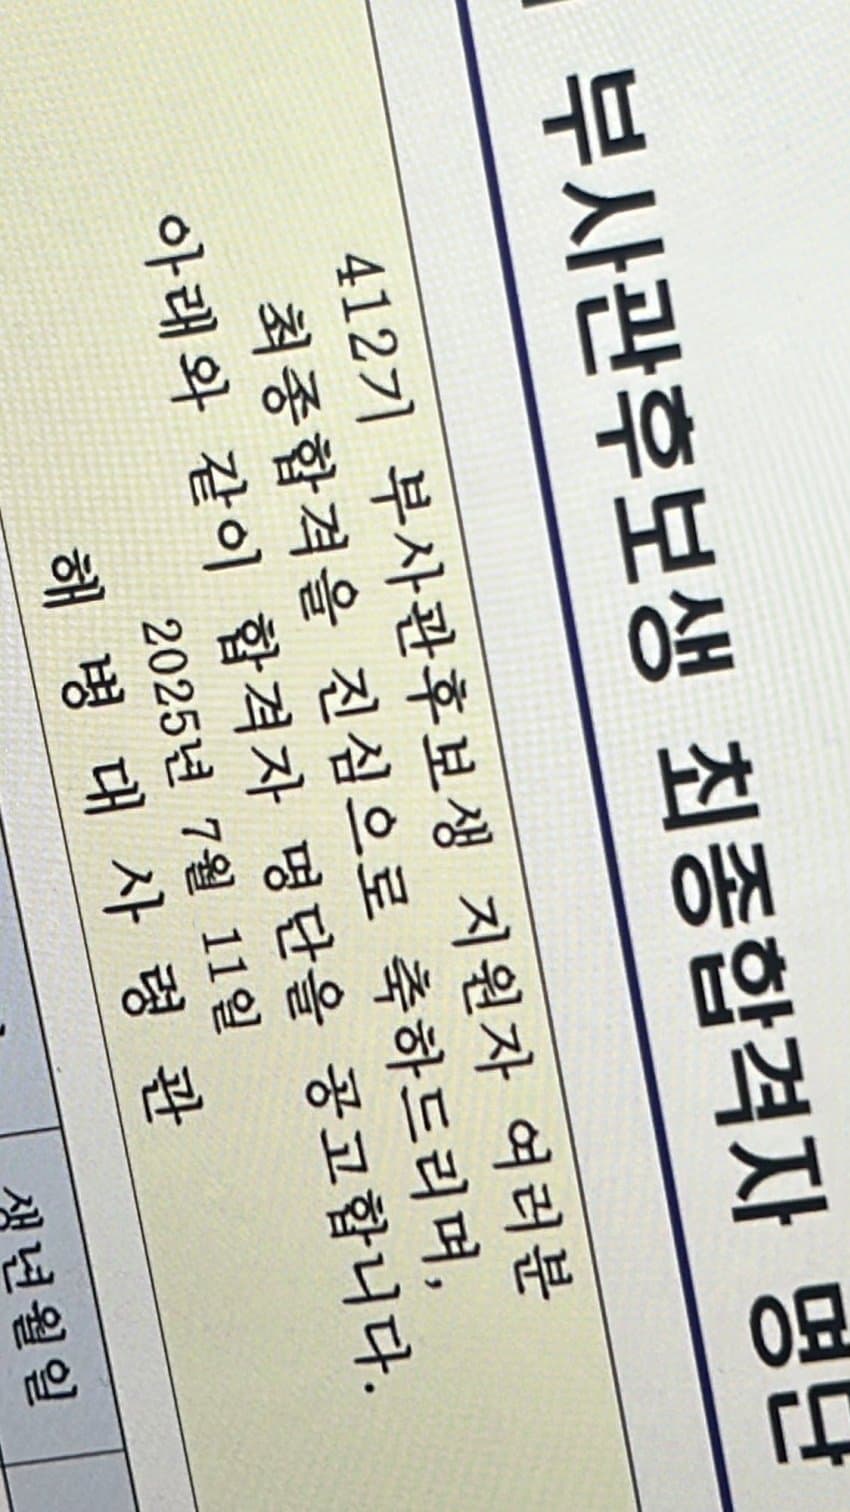 부사관후보생 최종합격자 명단
412기 부사관후보생 지원자 여러분
최종합격을 진심으로 축하드리며,
아래와 같이 합격자 명단을 공고합니다.
2025년 7월 11일
해 병 대 사 령 관
생년월일